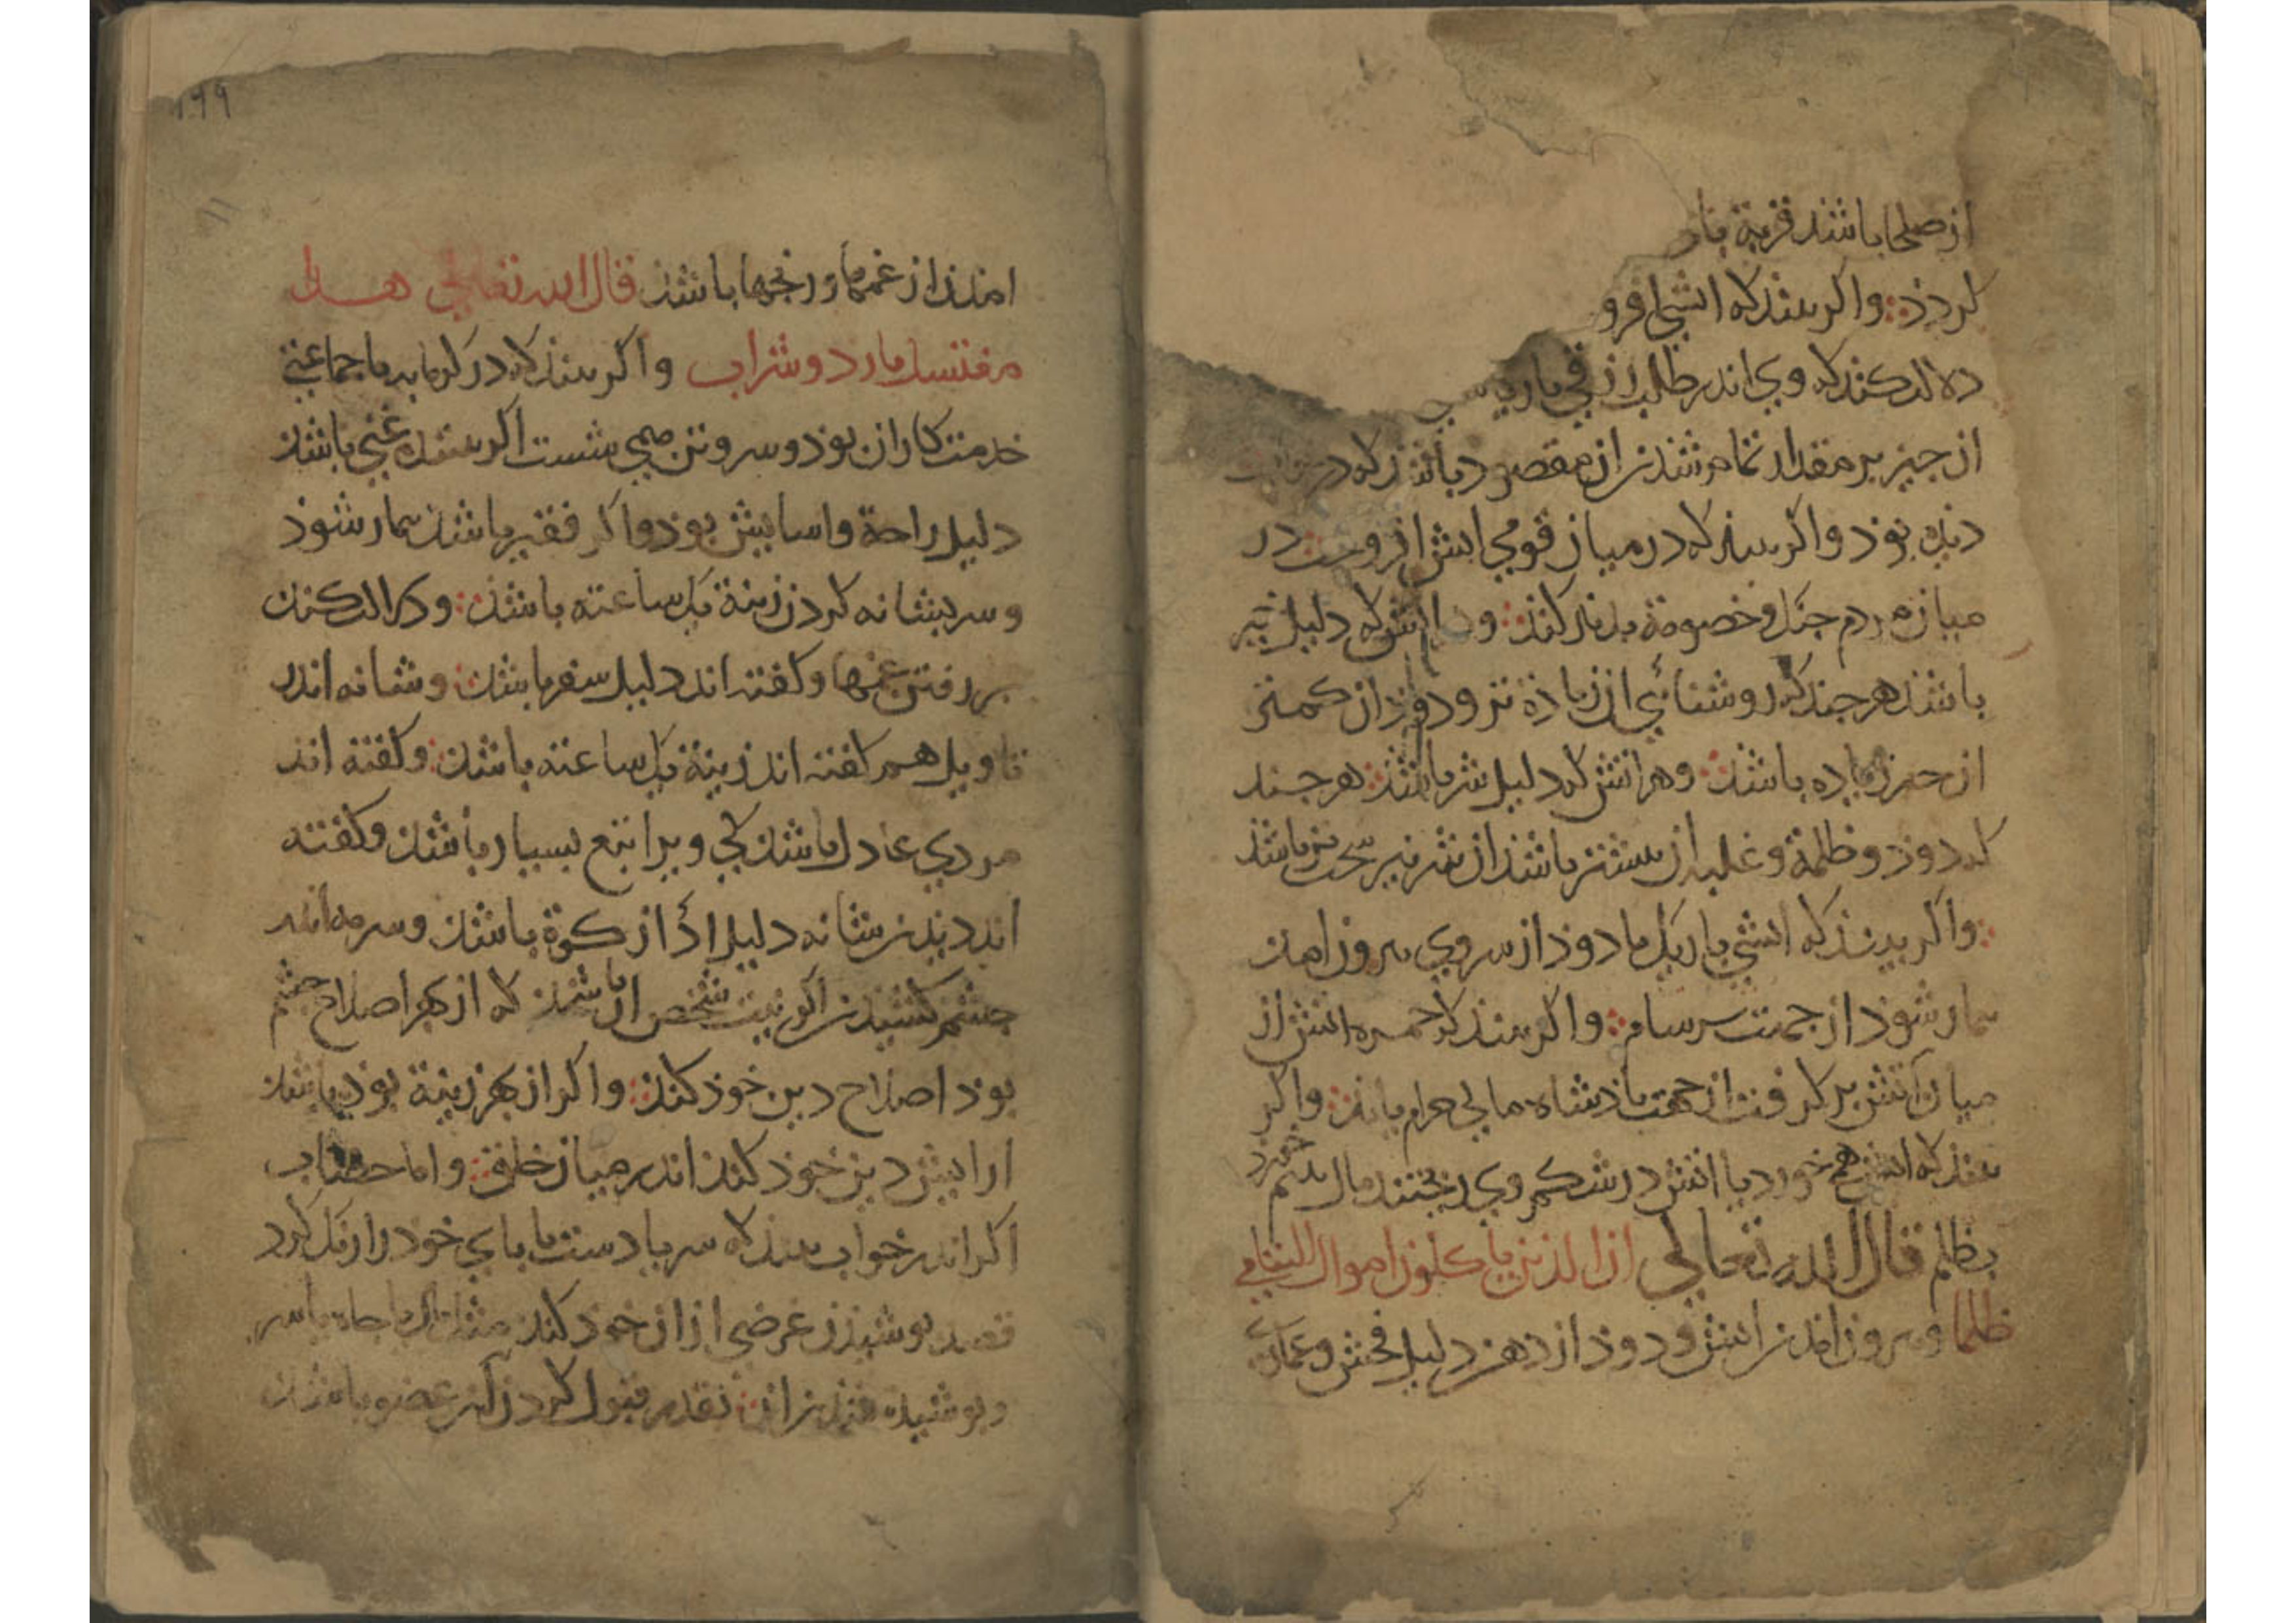 از صلحا باشد قربة بار
کردذ واکر بیند که اتشی افرو
دلالة کند که وی اندر طلب رزقی باریـ
از چیز بر مقدار تمام شدن ان مقصود باشد که در
دیده بوذ واکر بیند که در میان قومی اتش افروخت در
میان مردم جنک وخصومة بدید کند وهر اتش که دلیل خیر
باشد هرچند که روشنائی ان زیادة تر ودود ان کمتر
ان خیر زیاده باشد وهر اتش که دلیل شر باشد هرچند
که دوذ وظلمة وغلبه ان بیشتر باشد ان شر نیز سخت تر باشد
واکر بیند که اتشی باریک با دوذ از سر وی بیرون امد
بیمار شوذ از جهت سرسام واکر بیند که جمره اتش از
میان آتش بر کرفت از جهت باذشاه مالی حرام یابد واکر
بیند که اتش همی خورد یا اتش در شکم وی ریختند مال یتیم خورد
بظلم قال الله تعالی ان الذین یأکلون اموال الیتامی
ظلما وبیرون امدن اتش ودوذ از دهن دلیل فحش وغمازی
۱۹۹
امدن از غمها ورنجها باشد قال الله تعالی هذا
مغتسل بارد وشراب واکر بیند که در کرمابه با جماعتی
خدمتکاران بوذ وسر وتن همی شست اکر بیننده غنی باشد
دلیل راحة واسایش بوذ واکر فقیر باشد بیمار شوذ
وسر بشانه کردن زینة یک ساعته باشد ودلالة کند
بر رفتن غمها وکفته اند دلیل سفر باشد وشانه اندر
تاویل هم کفته اند زینة یک ساعته باشد وکفته اند
مردی عادل باشد کی ویرا تبع بسیار باشد وکفته
اند دیدن شانه دلیل اداء زکوة باشد وسرمه اندر
چشم کشیدن اکر نیت شخص ان باشد که از بهر اصلاح چشم
بوذ اصلاح دین خوذ کند واکر از بهر زینة بوذ باشد
ارایش دین خوذ کند اندر میان خلق واما خضاب
اکر اندر خواب بیند که سر یا دست یا بای خود را رنک کرد
قصد بوشیذن غرضی از ان خوذ کند مثل مال یا جاه یا سر
وبوشیده شدن ان بقدر قبول کردن ان عضو باشد